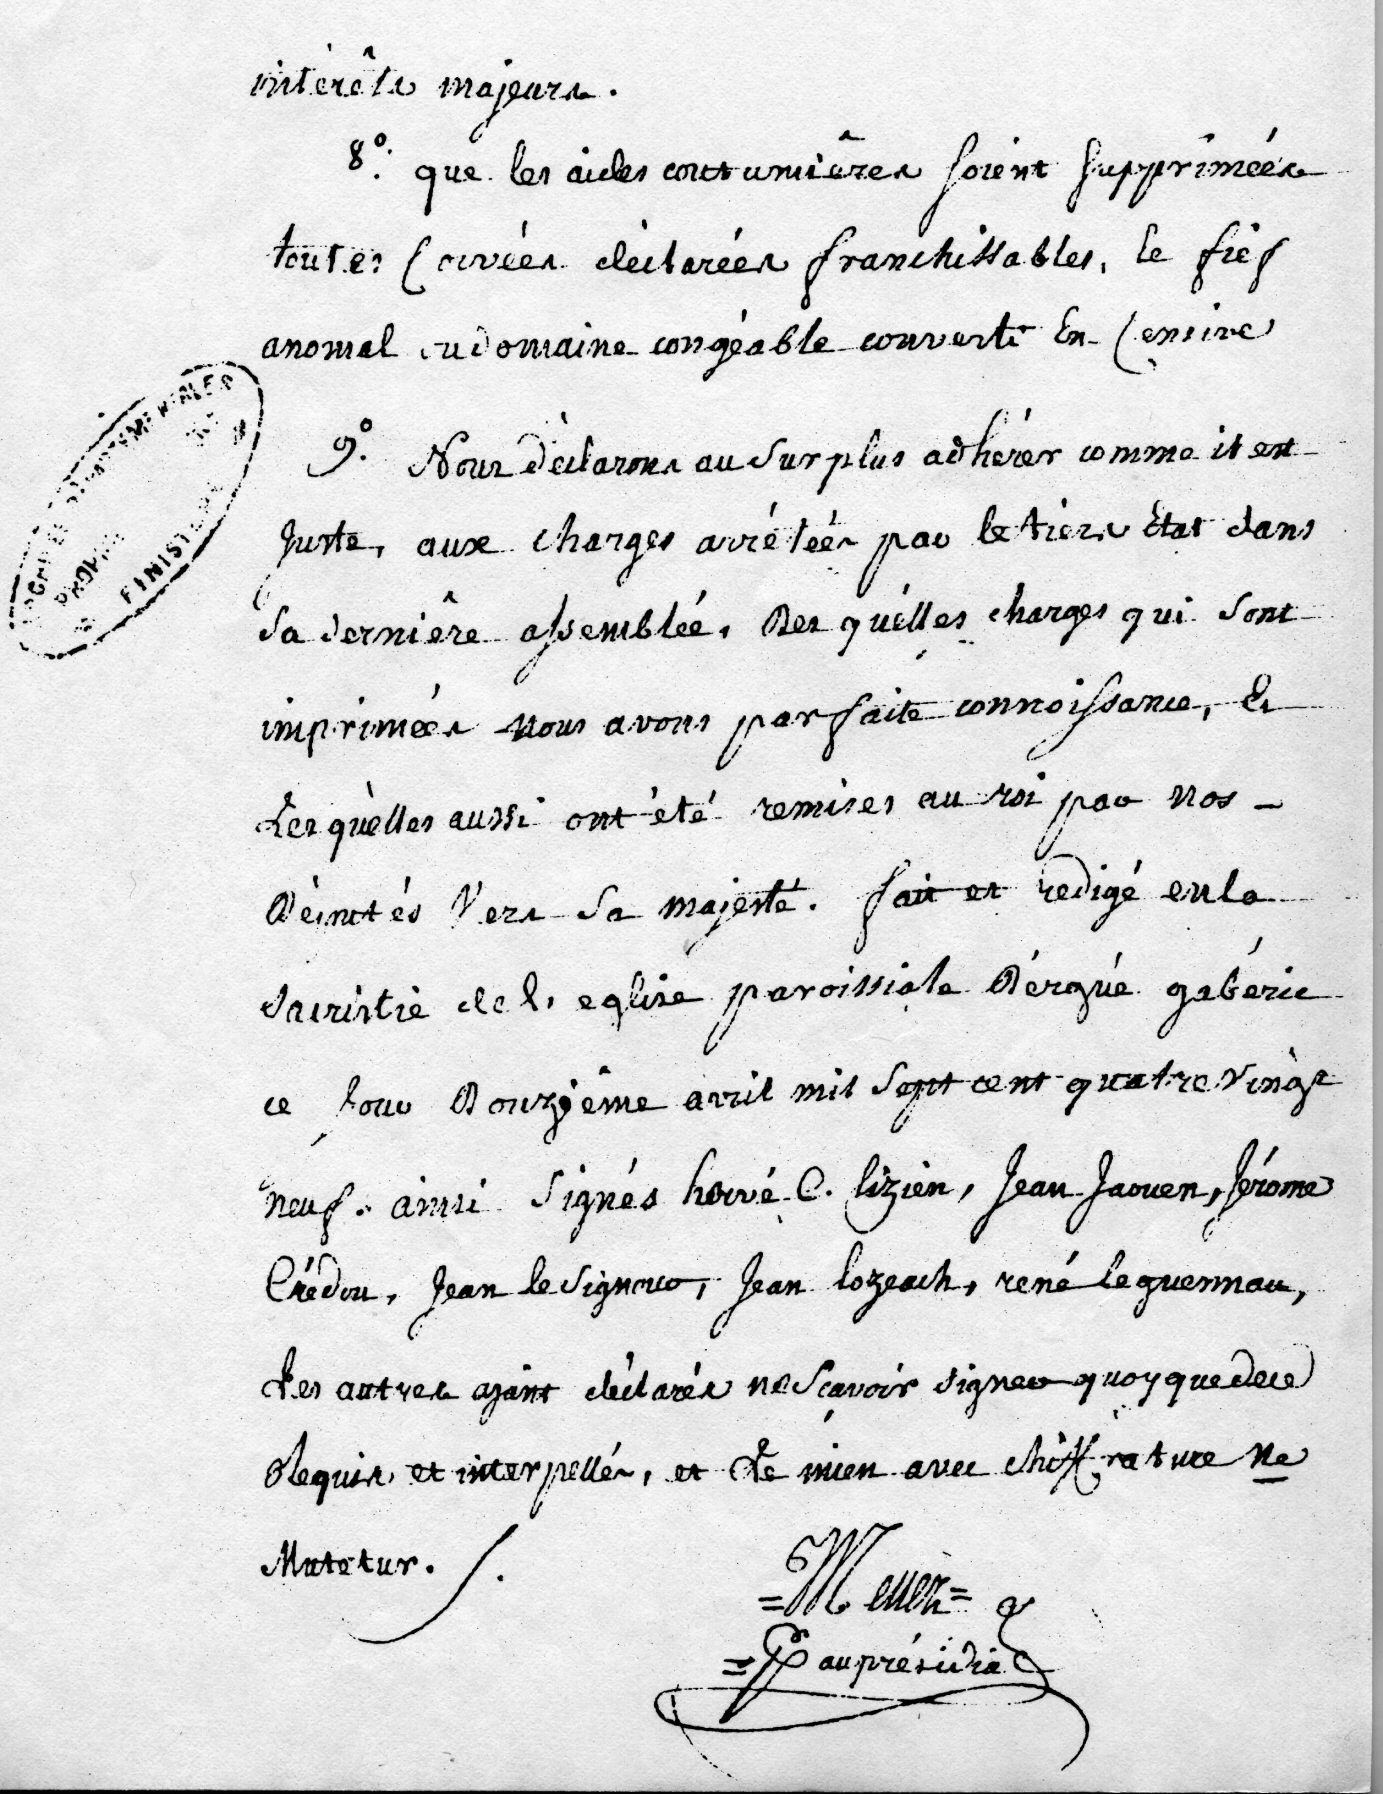 intérêts majeurs.
8°. que les aides coutumiêres soient supprimées
toutes Corvées déclarées franchissables, le fief
anomal ou domaine congéable converti En Censive
9°. Nous déclarons au surplus adhérer comme il est
Juste, aux charges arrétées par le tiers Etat dans
Sa derniêre assemblée, Des quélles charges qui sont
imprimées nous avons parfaite connoissance, Et
Les quèlles aussi ont été remises au roi par nos
Députés Vers Sa majesté. fait et redigé en la
Sacristie de l'eglise paroissiale D'ergué gabéric
ce Jour Douziême avril mil Sept cent quatre vingt
neuf. ainsi Signés hervé C. lizien, Jean Jaouen, Jérome
Crédou, Jean le Signour, Jean lozeach, rené le guennau,
Les autres ajant déclarés ne Scavoir signer quoy que de ce
Requis et interpellés, et Le mien avec chiff. rature ne
Mutetur.
ARCHIVES DEPARTEMENTALES
DU
FINISTERE
=Meuer=
=P au présidia